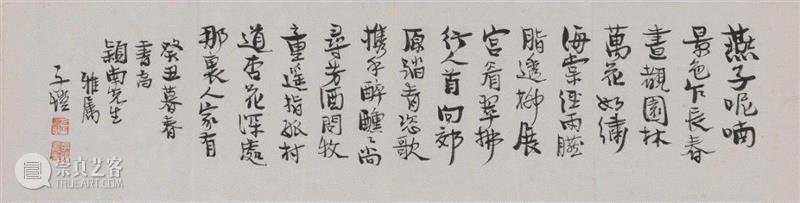 燕子呢喃
景色乍長春
晝觀園林
萬花如繡
海棠經雨臙
脂透柳展
宮眉翠拂
行人首向郊
原踏青恣歌
携手醉醺〻尚
尋芳酒問牧
童遥指孤村
道杏花深處
那裏人家有
癸丑暮春
書
穎南先生
雅屬
子愷
崇真艺客
WWW.TRUEART.COM